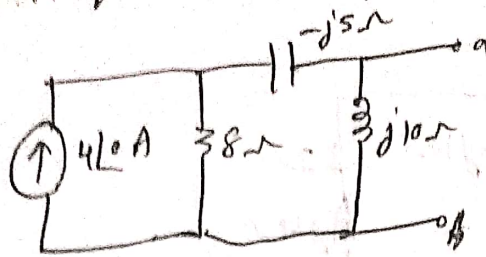 -j5Ω
a
4∠0 A
8Ω
j10Ω
b